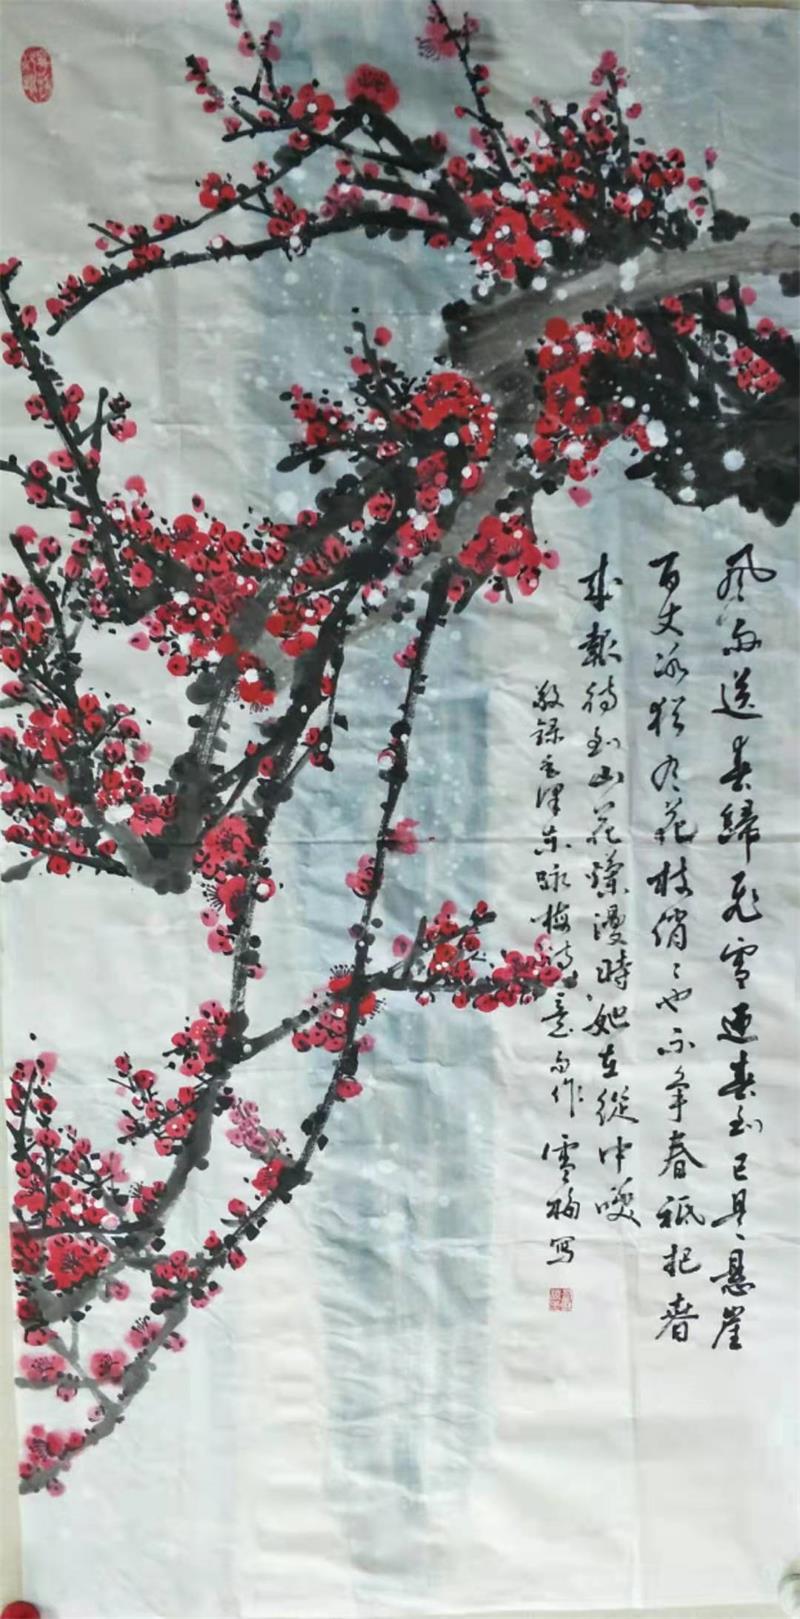 風雨送春歸飛雪迎春到已是懸崖
百丈冰猶有花枝俏俏也不爭春祇把春
來報待到山花爛漫時她在從中笑
敬錄毛澤東咏梅詩意而作 雪梅寫